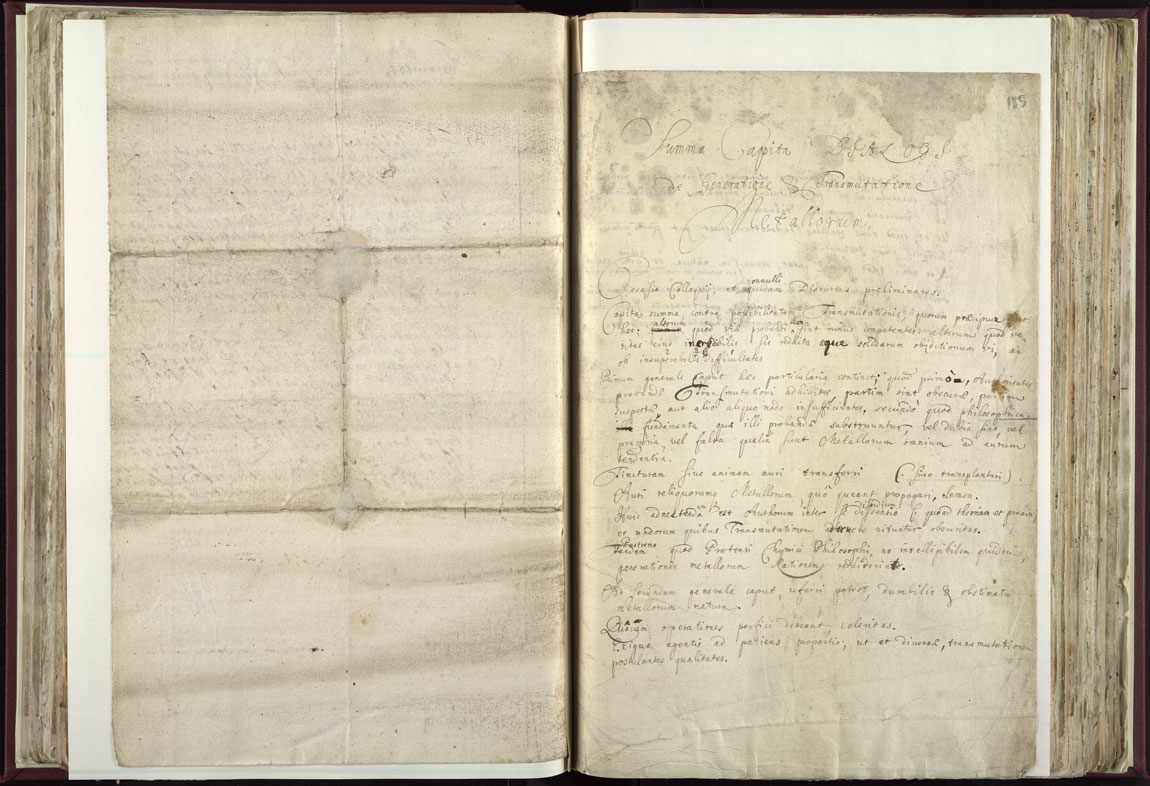 185
Summa Capita DIALOGI
de Generatione & Transmutatione
Metallorum.
Occasio Colloquij, et nonnulli Discursus præliminares.
Capita summa contra possibilitatem Transmutationis, quorum præcipua sunt
hæc: quod via probandi illam sint minus competentes alterum quod ve-
ritas eius incredibilis sit reddita solidarum objectionum vi, ac
ob insuperabiles difficultates
Primum generale caput hæc particularia continet; quod primò, Authoritates
probandæ Transmutationi adhibitæ, partim sint obscuræ, partim
suspectæ aut alio aliquo modo insufficientes. secundò quod philosophica
fundamenta quæ illi probandæ substruuntur, vel dubia sint vel
precaria vel falsa qualia sunt Metallorum omnium ad aurum
tendentia.
Tincturam sive animam auri transferri (sive transplantari).
Auri reliquorumq Metallorum quo queant propagari, semen.
Huic adnectenda est Authorum inter se dissentio quoad theoriam et praxin
et modorum quibus Transmutationem nituntur obscuritas.
Postremo quod Protensi Chymici Philosophi, ne intelligibilem quidem,
generationis metallorum Rationem reddiderint.
Ad secundum generale caput, referri potest, durabilis & obstinata
metallorum natura.
Quâcum operationes perfici debeant, celeritas.
Exigua agentis ad patiens proportio; ut et diversæ, transmutationem
postulantes qualitates.